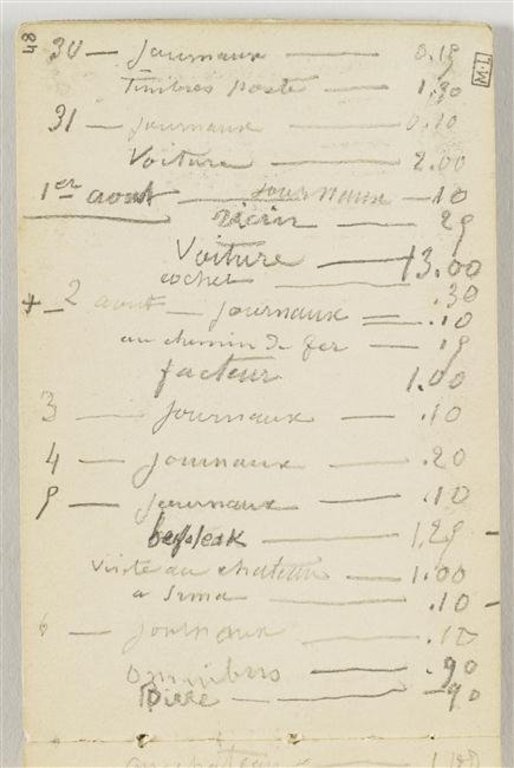 48
T.W
30 — journaux — 0.15
Timbres poste — 1.50
31 — journaux — 0.20
Voiture — 2.00
1er aout — journaux — 10
— 25
Voiture — 13.00
cocher — .30
+ — 2 aout — journaux — .10
au chemin de fer — 15
facteur 1.00
3 — journaux — .10
4 — journaux — .20
5 — journaux — .10
1.25 —
Visite au chateau — 1.00
a — .10 —
6 — journaux — .10
omnibus — .90
— 
au chateau